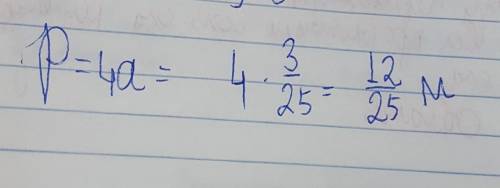 P = 4a = 4 · 3/25 = 12/25 м